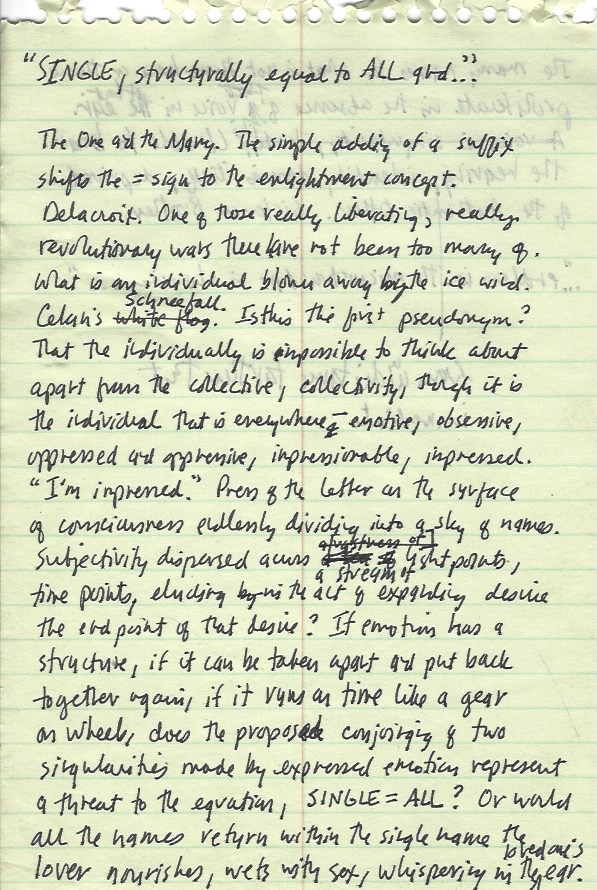 "SINGLE, structurally equal to ALL and..."
The One and the Many. The simple adding of a suffix
shifts the = sign to the enlightment concept.
Delacroix. One of those really liberating, really
revolutionary wars there have not been too many of.
What is an individual blown away by the ice wind.
Schneefall.
Celan's white flag. Is this the first pseudonym?
That the individually is impossible to think about
apart from the collective, collectivity, though it is
the individual that is everywhere – emotive, obsessive,
oppressed and oppressive, impressionable, impressed.
"I'm impressed." Press of the letter on the surface
of consciousness endlessly dividing into a sky of names.
Subjectivity dispersed across light points,
a stream of
time points, eluding by in the act of expanding desire
the endpoint of that desire? If emotion has a
structure, if it can be taken apart and put back
together again, if it runs on time like a gear
on wheels, does the proposed conjoining of two
singularities made by expressed emotion represent
a threat to the equation, SINGLE = ALL? Or would
all the names return within the single name the
loved one's
lover nourishes, wets with sex, whispering in the ear.